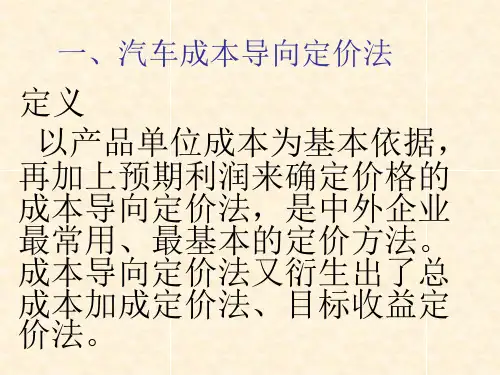 一、汽车成本导向定价法
定义
以产品单位成本为基本依据，
再加上预期利润来确定价格的
成本导向定价法，是中外企业
最常用、最基本的定价方法。
成本导向定价法又衍生出了总
成本加成定价法、目标收益定
价法。